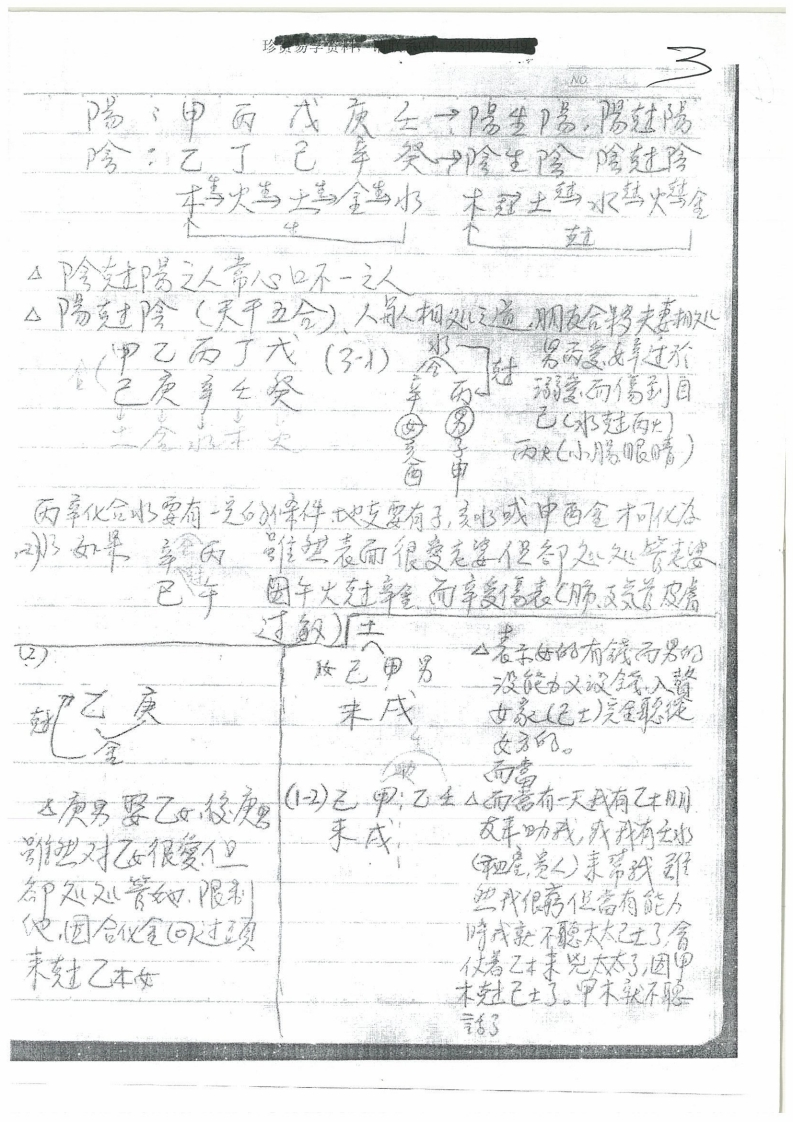 珍贵易学资料
NO.
3
陽：甲 丙 戊 庚 壬→陽生陽，陽尅陽
陰：乙 丁 己 辛 癸→陰生陰 陰尅陰
木生火生土生金生水 木尅土尅水尅火尅金
生 尅
△ 陰尅陽之人常心口不一之人
△ 陽尅陰（天干五合）、人與人相处之道，朋友合夥夫妻相处
甲乙丙丁戊 (3-1)
己庚辛壬癸
土 金 水 木 火
水
金
尅
辛 丙
女 男
亥 子
酉 申
男丙愛女辛过於
溺愛而傷到自
己（水尅丙火）
丙火（小腸眼睛）
丙辛化合水要有一定的條件，地支要有子，亥水或申酉金才可化为
水 如果 辛 丙 雖然表面很愛老婆但卻处处管老婆
巳 午 因午火尅辛金而辛受傷表（肺、支気管皮膚
过敏）
(2)
尅 乙 庚
金
△庚男娶乙女，後庚男
雖然对乙女很愛，但
卻处处管她，限制
他，因合化金回过頭
来尅乙木女
土
女己 甲男
未 戌
△表示女的有錢而男的
没能力又没錢，入贅
女家（己土）完全聽從
女方的。
而當
(1-2) 己 甲；乙 壬
未 戌
△而當有一天我有乙木朋
友来助我，或我有壬水
（祖產，贵人）来幫我 雖
然我很窮但當有能力
時我就不聽太太己土了，會
仗着乙木来兇太太了，因甲
木尅己土了。甲木就不聽
話了